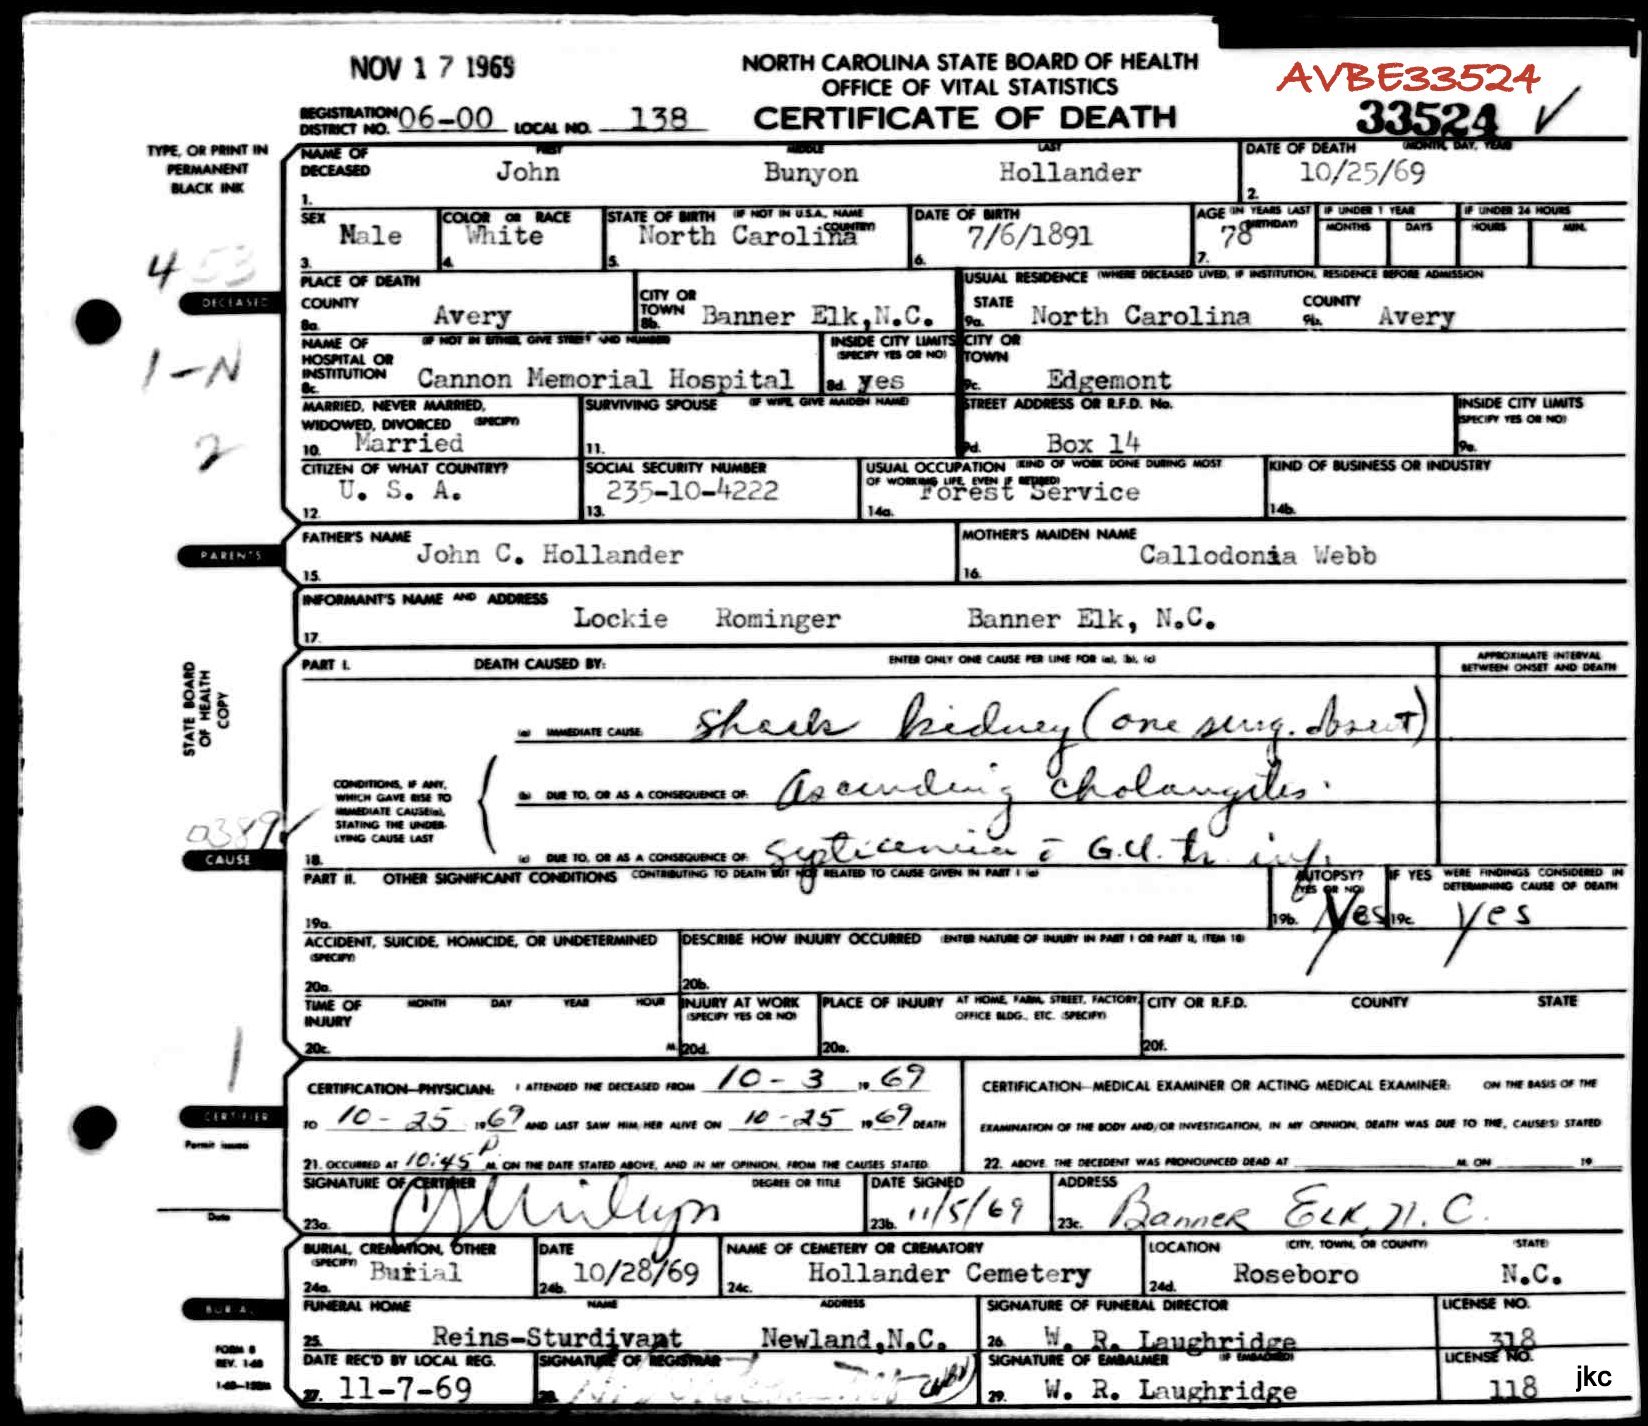 NOV 17 1969
NORTH CAROLINA STATE BOARD OF HEALTH
OFFICE OF VITAL STATISTICS
CERTIFICATE OF DEATH
AVBE33524
33524
REGISTRATION DISTRICT NO. 06-00 LOCAL NO. 138
TYPE, OR PRINT IN
PERMANENT
BLACK INK
NAME OF DECEASED FIRST MIDDLE LAST
1. John Bunyon Hollander
DATE OF DEATH (MONTH, DAY, YEAR)
2. 10/25/69
SEX
3. Male
COLOR OR RACE
4. White
STATE OF BIRTH (IF NOT IN U.S.A., NAME COUNTRY)
5. North Carolina
DATE OF BIRTH
6. 7/6/1891
AGE (IN YEARS LAST BIRTHDAY)
7. 78
IF UNDER 1 YEAR
MONTHS DAYS
IF UNDER 24 HOURS
HOURS MIN.
4 53
DECEASED
1-N
2
PLACE OF DEATH
COUNTY
8a. Avery
CITY OR TOWN
8b. Banner Elk,N.C.
USUAL RESIDENCE (WHERE DECEASED LIVED, IF INSTITUTION, RESIDENCE BEFORE ADMISSION
STATE
9a. North Carolina
COUNTY
9b. Avery
NAME OF HOSPITAL OR INSTITUTION (IF NOT IN EITHER, GIVE STREET AND NUMBER)
8c. Cannon Memorial Hospital
INSIDE CITY LIMITS (SPECIFY YES OR NO)
8d. yes
CITY OR TOWN
9c. Edgemont
MARRIED, NEVER MARRIED, WIDOWED, DIVORCED (SPECIFY)
10. Married
SURVIVING SPOUSE (IF WIFE, GIVE MAIDEN NAME)
11.
STREET ADDRESS OR R.F.D. No.
9d. Box 14
INSIDE CITY LIMITS (SPECIFY YES OR NO)
9e.
CITIZEN OF WHAT COUNTRY?
12. U. S. A.
SOCIAL SECURITY NUMBER
13. 235-10-4222
USUAL OCCUPATION (KIND OF WORK DONE DURING MOST OF WORKING LIFE, EVEN IF RETIRED)
14a. Forest Service
KIND OF BUSINESS OR INDUSTRY
14b.
PARENTS
FATHER'S NAME
15. John C. Hollander
MOTHER'S MAIDEN NAME
16. Callodonia Webb
INFORMANT'S NAME AND ADDRESS
17. Lockie Rominger Banner Elk, N.C.
STATE BOARD
OF HEALTH
COPY
PART I. DEATH CAUSED BY: ENTER ONLY ONE CAUSE PER LINE FOR (a), (b), (c)
APPROXIMATE INTERVAL
BETWEEN ONSET AND DEATH
(a) IMMEDIATE CAUSE: kidney (one surg. absent)
CONDITIONS, IF ANY,
WHICH GAVE RISE TO
IMMEDIATE CAUSE(a),
STATING THE UNDER-
LYING CAUSE LAST
(b) DUE TO, OR AS A CONSEQUENCE OF: Ascending cholangitis.
0389
CAUSE
18. (c) DUE TO, OR AS A CONSEQUENCE OF: Septicemia c̄ G.U. tr. inf.
PART II. OTHER SIGNIFICANT CONDITIONS CONTRIBUTING TO DEATH BUT NOT RELATED TO CAUSE GIVEN IN PART I (a)
19a.
AUTOPSY? (YES OR NO)
19b. Yes
IF YES WERE FINDINGS CONSIDERED IN DETERMINING CAUSE OF DEATH
19c. Yes
ACCIDENT, SUICIDE, HOMICIDE, OR UNDETERMINED
(SPECIFY)
20a.
DESCRIBE HOW INJURY OCCURRED (ENTER NATURE OF INJURY IN PART I OR PART II, ITEM 18)
20b.
TIME OF INJURY MONTH DAY YEAR HOUR
20c. M.
INJURY AT WORK (SPECIFY YES OR NO)
20d.
PLACE OF INJURY AT HOME, FARM, STREET, FACTORY, OFFICE BLDG., ETC. (SPECIFY)
20e.
CITY OR R.F.D. COUNTY STATE
20f.
1
CERTIFIER
CERTIFICATION—PHYSICIAN: I ATTENDED THE DECEASED FROM 10-3 1969
TO 10-25 1969 AND LAST SAW HIM/HER ALIVE ON 10-25 1969 DEATH
21. OCCURRED AT 10:45 P M. ON THE DATE STATED ABOVE, AND IN MY OPINION, FROM THE CAUSES STATED
CERTIFICATION—MEDICAL EXAMINER OR ACTING MEDICAL EXAMINER: ON THE BASIS OF THE
EXAMINATION OF THE BODY AND/OR INVESTIGATION, IN MY OPINION, DEATH WAS DUE TO THE, CAUSE(S) STATED
22. ABOVE. THE DECEDENT WAS PRONOUNCED DEAD AT M. ON 19
Permit issued
Date
SIGNATURE OF CERTIFIER DEGREE OR TITLE
23a.
DATE SIGNED
23b. 11/5/69
ADDRESS
23c. Banner Elk, N. C.
BURIAL, CREMATION, OTHER (SPECIFY)
24a. Burial
DATE
24b. 10/28/69
NAME OF CEMETERY OR CREMATORY
24c. Hollander Cemetery
LOCATION (CITY, TOWN, OR COUNTY) (STATE)
24d. Roseboro N.C.
BURIAL
FUNERAL HOME NAME ADDRESS
25. Reins-Sturdivant Newland,N.C.
SIGNATURE OF FUNERAL DIRECTOR
26. W. R. Laughridge
LICENSE NO.
318
FORM 8
REV. 1-68
DATE REC'D BY LOCAL REG.
27. 11-7-69
SIGNATURE OF REGISTRAR
28.
SIGNATURE OF EMBALMER (IF EMBALMED)
29. W. R. Laughridge
LICENSE NO.
118
jkc